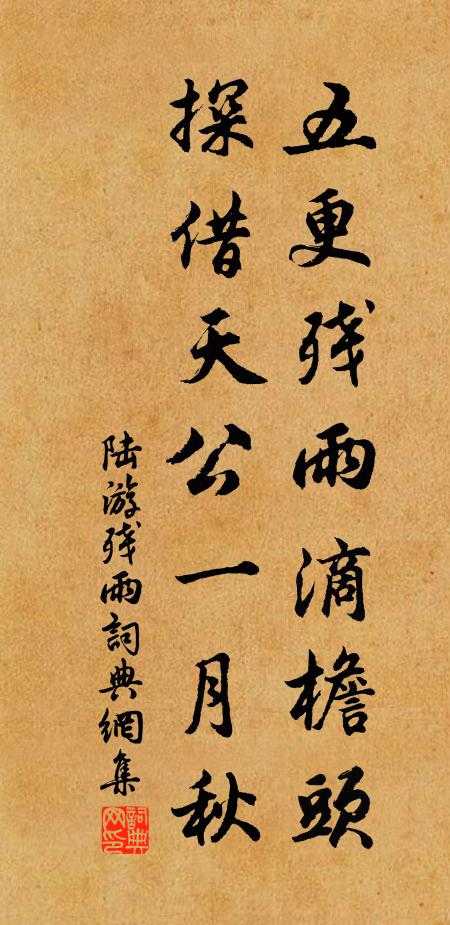 五更残雨滴檐頭
探借天公一月秋
陆游残雨詞典網集
詞典
网印